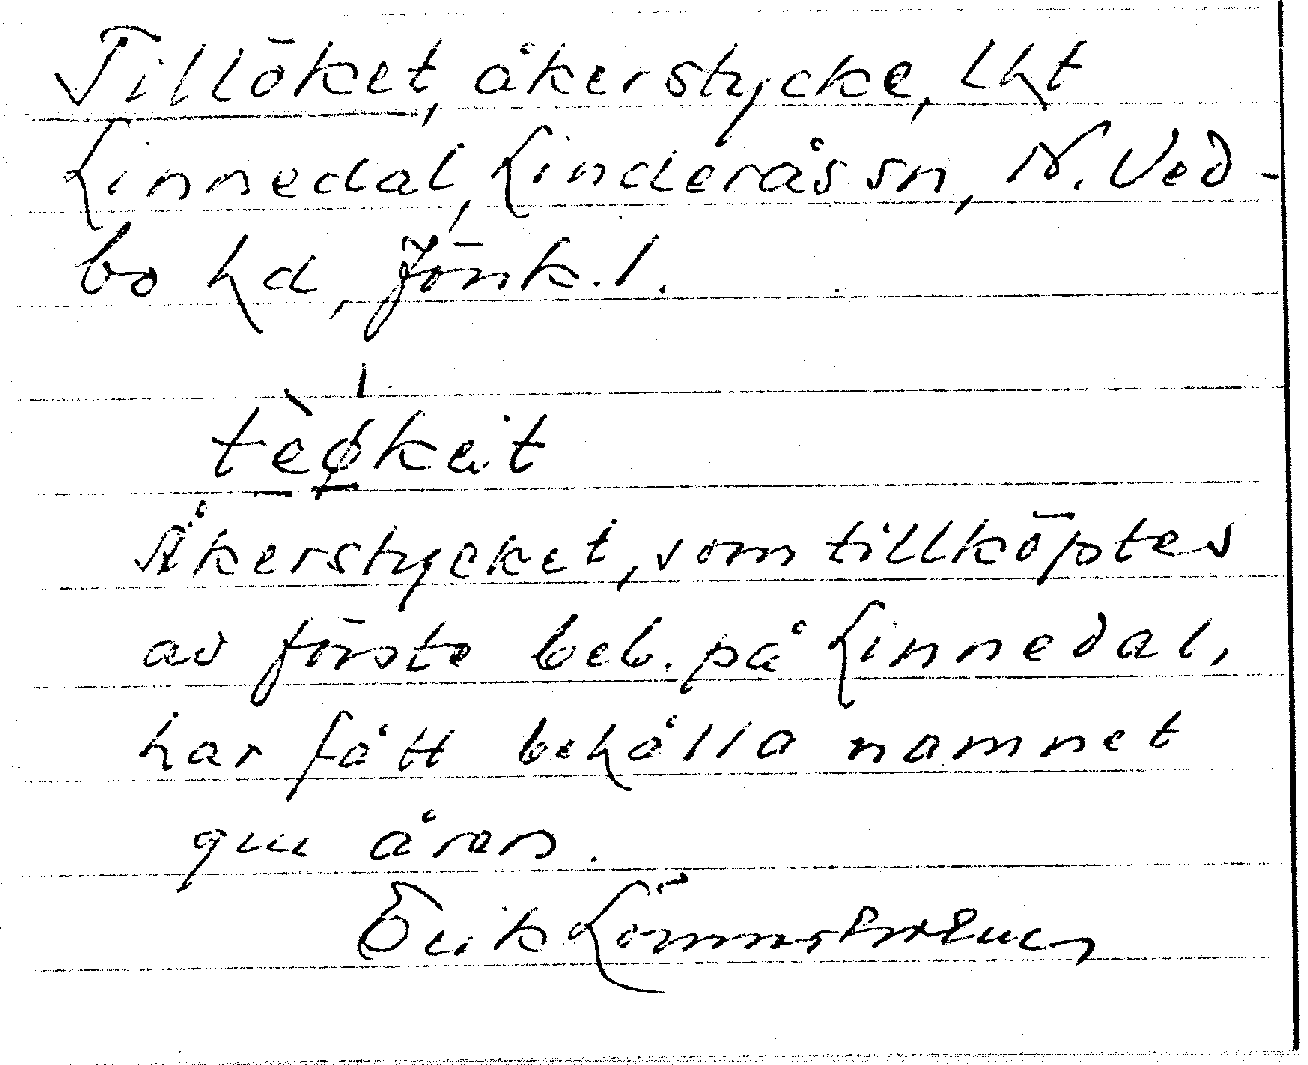 Tillöket, åkerstycke, lht
Linnedal, Linderås sn, N. Ved-
bo hd, Jönk. l.
Åkerstycket, som tillköptes
av förste beb. på Linnedal,
har fått behålla namnet
gm åren.
Erik